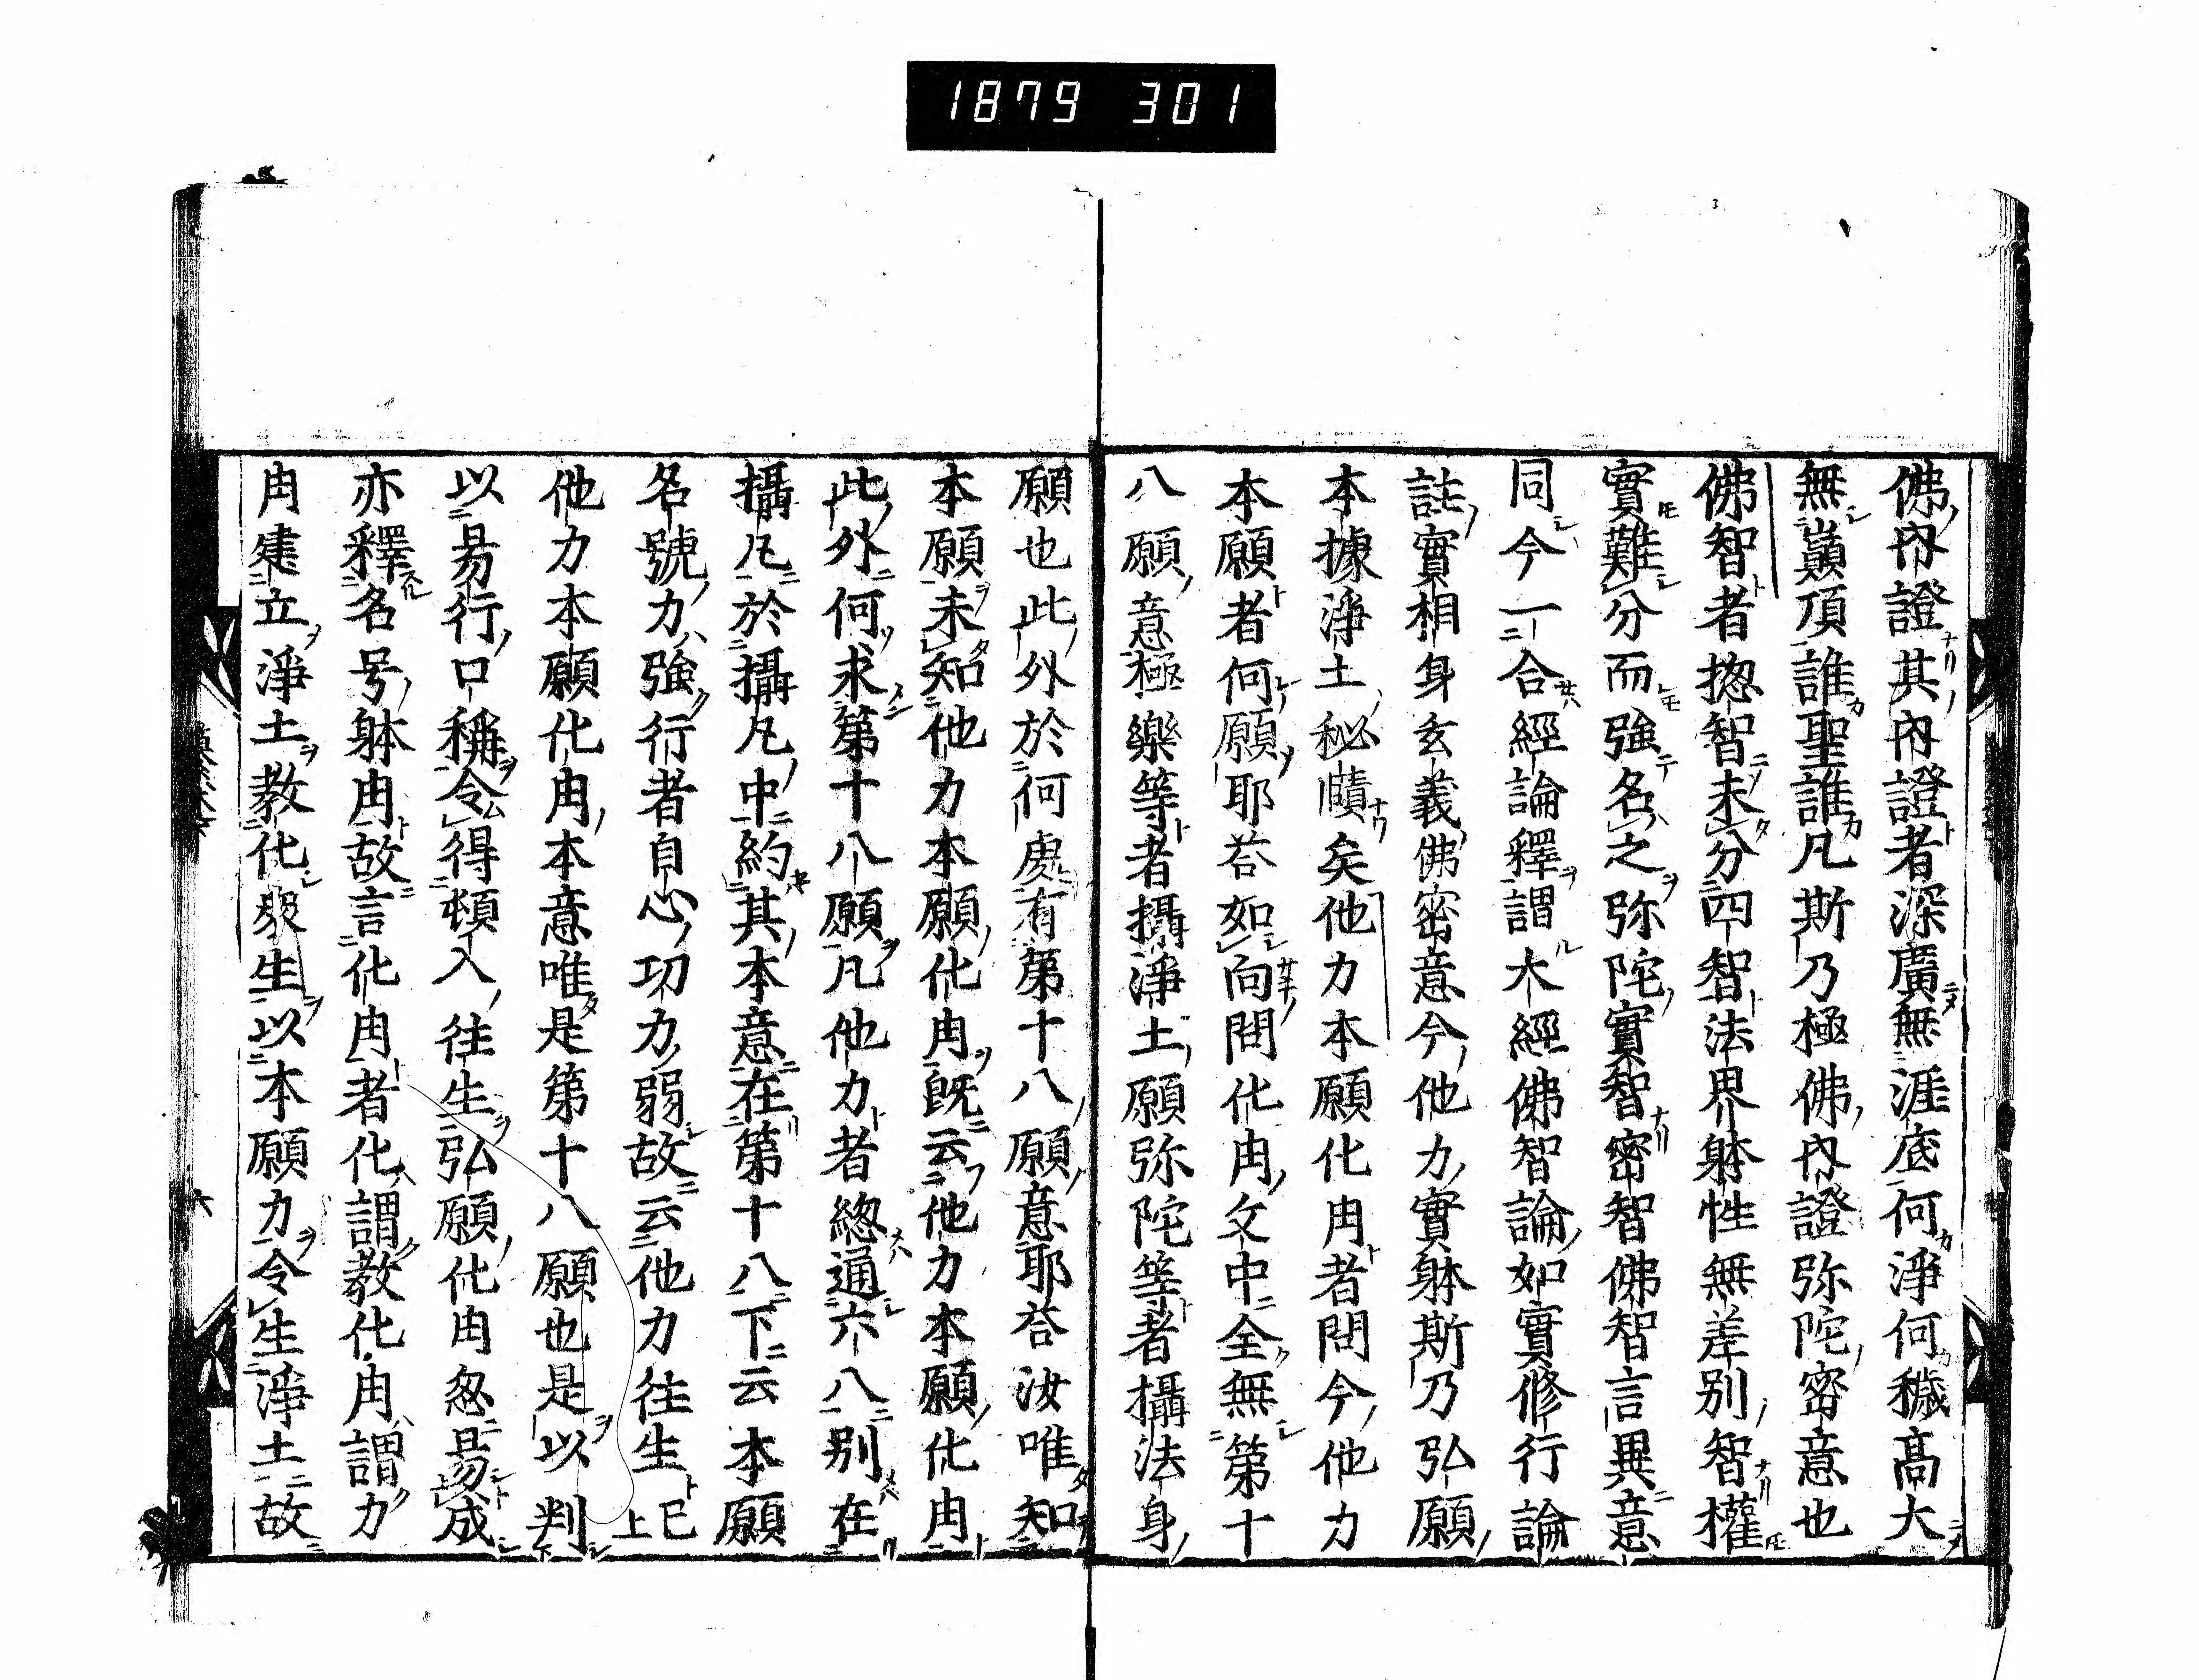 1879 301
佛內證其內證者深廣無涯底何淨何穢高大
無巓頂誰聖誰凡斯乃極佛內證弥陀密意也
佛智者揔智未分四智法界躰性無差別智權
實難分而強名之弥陀實智密智佛智言異意
同今一合經論釋謂大經佛智論如實修行論
註實相身玄義佛密意今他力實躰斯乃弘願
本據淨土秘賾矣他力本願化用者問今他力
本願者何願耶荅如向問化用文中全無第十
八願意極樂等者攝淨土願弥陀等者攝法身
願也此外於何處有第十八願意耶荅汝唯知
本願未知他力本願化用既云他力本願化用
此外何求第十八願凡他力者緫通六八別在
攝凡於攝凡中約其本意在第十八下云本願
名號力強行者自心功力弱故云他力往生已上
他力本願化用本意唯是第十八願也是以判
以易行口稱令得頓入往生弘願化用忽易成
亦釋名号躰用故言化用者化謂教化用謂力
用建立淨土教化衆生以本願力令生淨土故
六